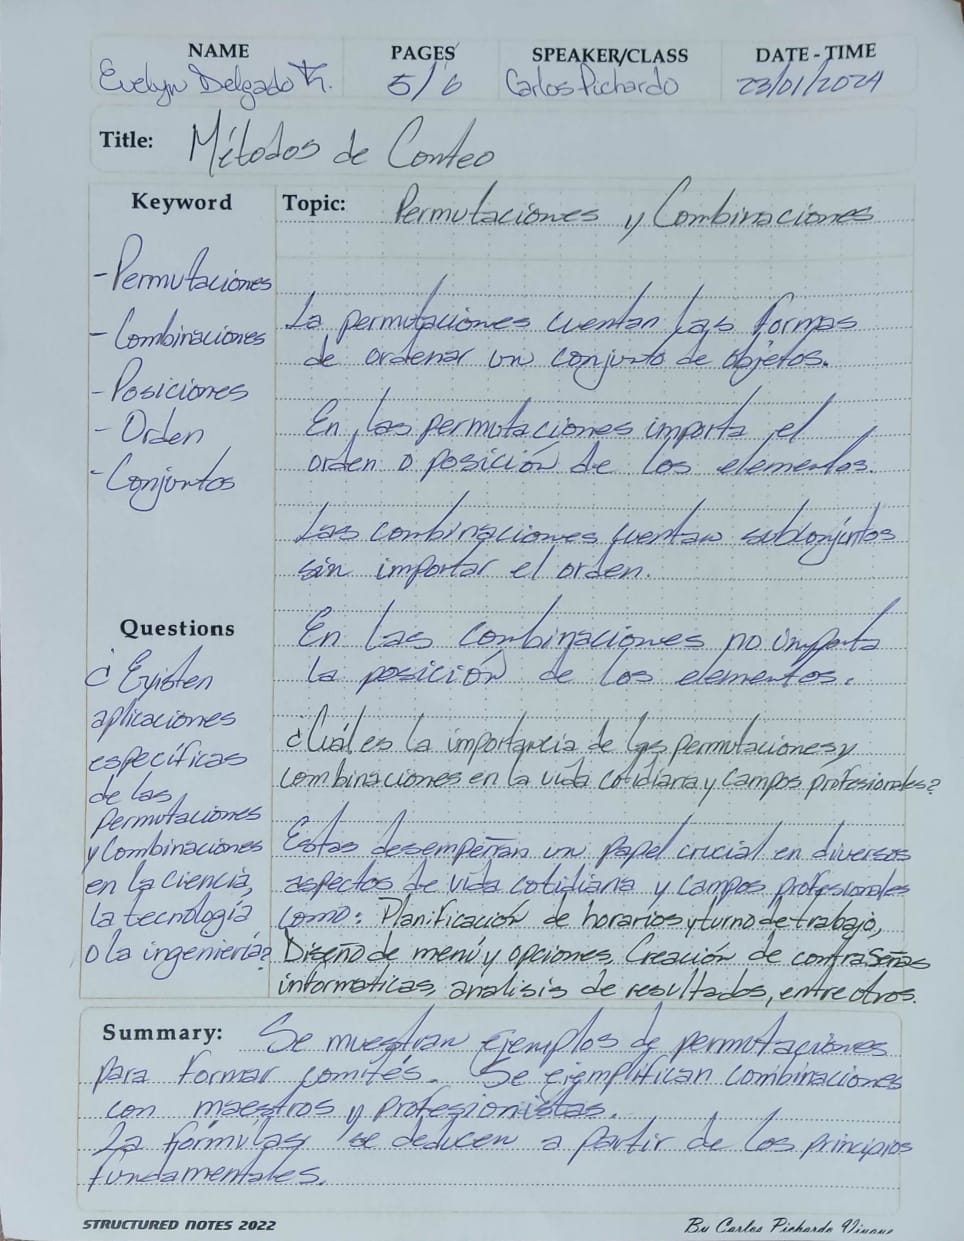 NAME PAGES SPEAKER/CLASS DATE - TIME
Evelyn Delgado 5/6 Carlos Pichardo 23/01/2024
Title: Métodos de Conteo
Keyword
- Permutaciones
- Combinaciones
- Posiciones
- Orden
- Conjuntos
Questions
¿Existen
aplicaciones
específicas
de las
Permutaciones
y Combinaciones
en la ciencia,
la tecnología
o la ingeniería?
Topic: Permutaciones y Combinaciones
La permutaciones cuentan las formas
de ordenar un conjunto de objetos.
En las permutaciones importa el
orden o posición de los elementos.
Las combinaciones cuentan subconjuntos
sin importar el orden.
En las combinaciones no importa
la posición de los elementos.
¿Cuál es la importancia de las permutaciones y
combinaciones en la vida cotidiana y campos profesionales?
Estas desempeñan un papel crucial en diversos
aspectos de vida cotidiana y campos profesionales
como: Planificación de horarios y turno de trabajo,
Diseño de menú y opciones, Creación de contraseñas
informaticas, analisis de resultados, entre otros.
Summary: Se muestran ejemplos de permutaciones
para formar comités. Se ejemplifican combinaciones
con maestros y profesionistas.
La fórmulas se deducen a partir de los principios
fundamentales.
STRUCTURED NOTES 2022 By Carlos Pichardo